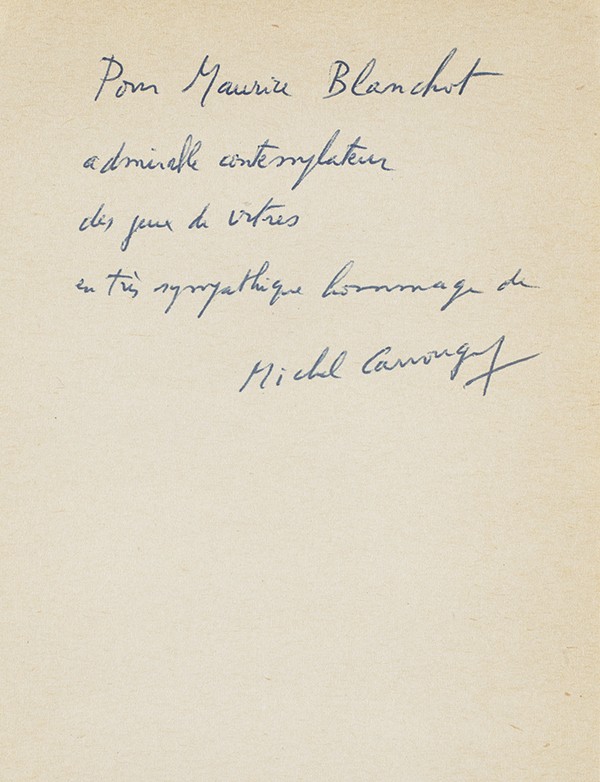 Pour Maurice Blanchot
admirable contemplateur
des jeux de vitres
en très sympathique hommage de
Michel Carrouges